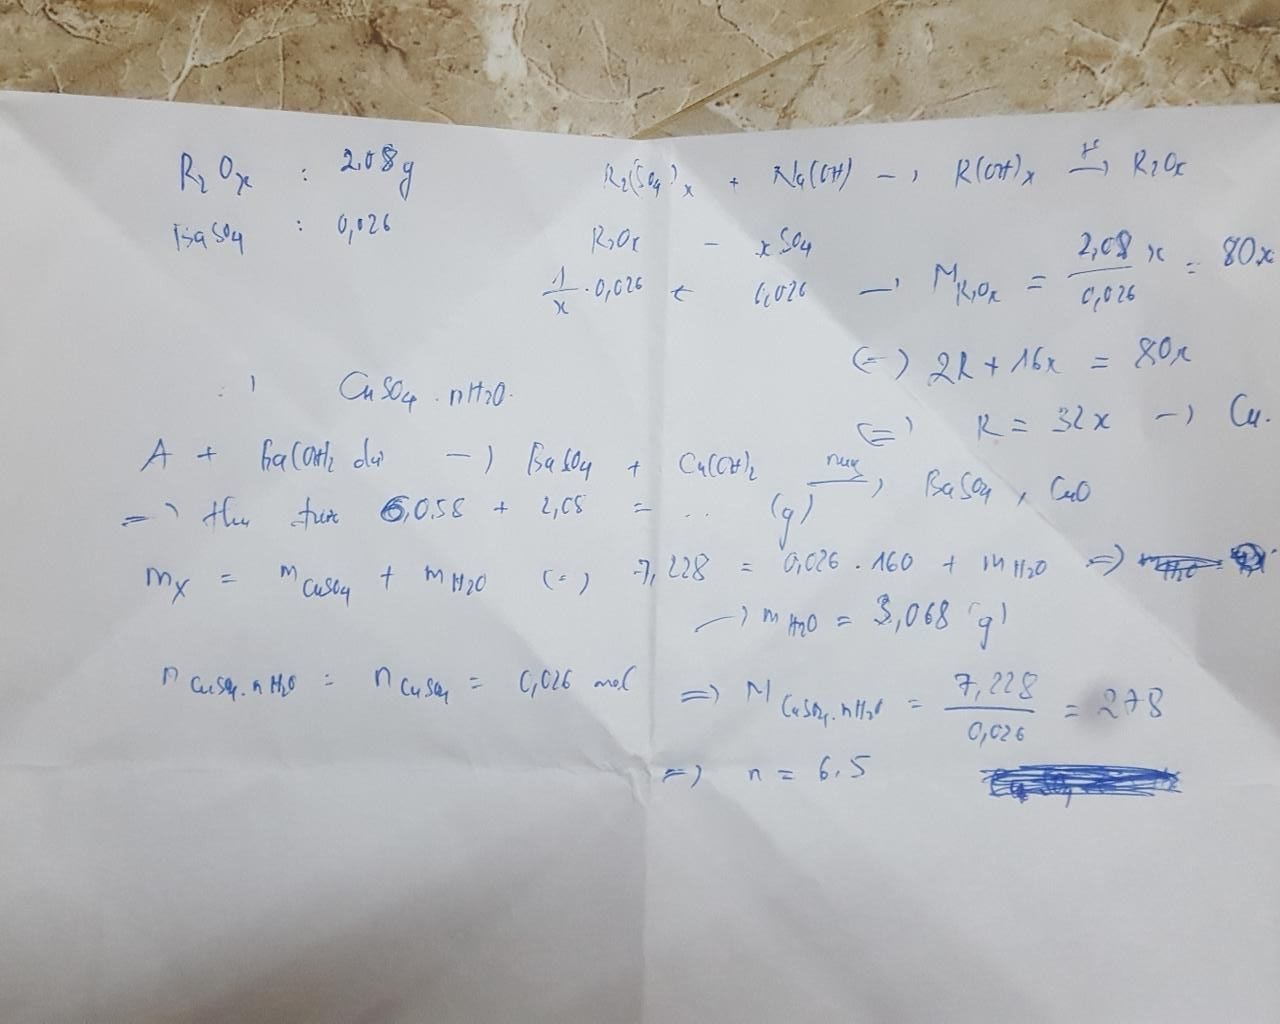 R2Ox : 2,08g
R2(SO4)x + Na(OH) → R(OH)x → R2Ox
BaSO4 : 0,026
R2Ox – xSO4
1/x . 0,026 ← 0,026 → M R2Ox = 2,08 x / 0,026 = 80x
(=) 2R + 16x = 80x
(=) R = 32x → Cu.
=) CuSO4 . nH2O.
A + Ba(OH)2 dư → BaSO4 + Cu(OH)2 nung → BaSO4 , CuO
=) thu được 6,058 + 2,08 = ... (g)
mX = mCuSO4 + mH2O (=) 7,228 = 0,026 . 160 + mH2O =)
→ mH2O = 3,068 (g)
nCuSO4.nH2O = nCuSO4 = 0,026 mol =) M CuSO4.nH2O = 7,228 / 0,026 = 278
=) n = 6.5